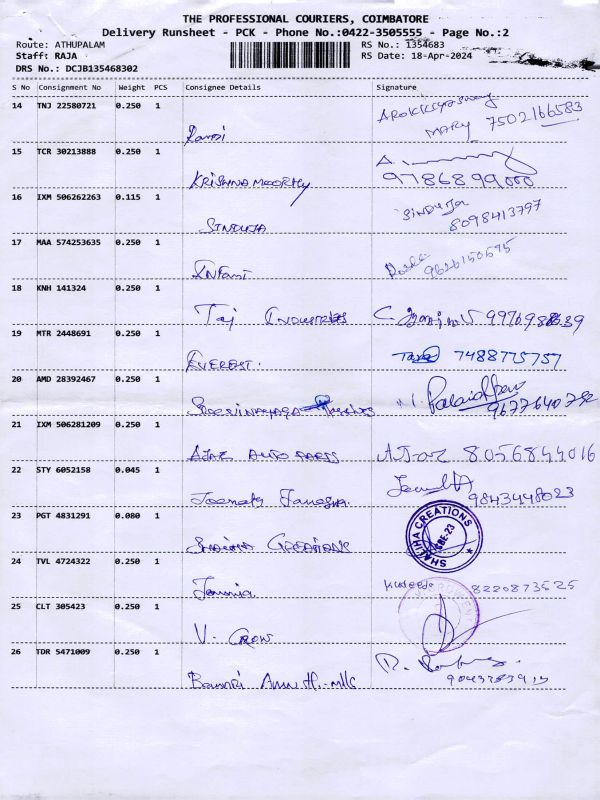 THE PROFESSIONAL COURIERS, COIMBATORE
Delivery Runsheet - PCK - Phone No.:0422-3505555 - Page No.:2
Route: ATHUPALAM
RS No.: 1354683
Staff: RAJA
RS Date: 18-Apr-2024
DRS No.: DCJB135468302
S No Consignment No Weight PCS Consignee Details Signature
14 TNJ 22580721 0.250 1
MARY 7502166583
15 TCR 30213888 0.250 1
KRISHNAMOORTHY 9786899000
16 IXM 506262263 0.115 1
SINDUJA
SINDUJA 8098413797
17 MAA 574253635 0.250 1
INFANT
18 KNH 141324 0.250 1
Taj INDUSTRIES
19 MTR 2448691 0.250 1
EVEREST. 7488775757
20 AMD 28392467 0.250 1
9677640792
21 IXM 506281209 0.250 1
AJAZ AUTO PARTS AJAZ 8056844016
22 STY 6052158 0.045 1
9843448023
23 PGT 4831291 0.080 1
CREATIONS
SHALIHA CREATIONS
24 TVL 4724322 0.250 1
8220873525
25 CLT 305423 0.250 1
V. CROW
26 TDR 5471009 0.250 1
Bannari Amm